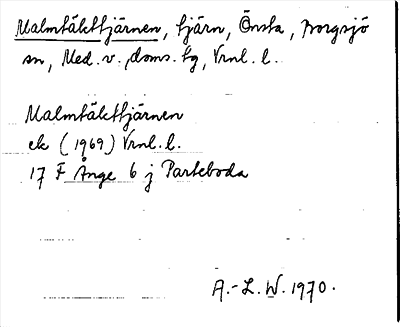 Malmtäkttjärnen, tjärn, Önsta, Borgsjö
sn, Med. v. doms. tg, Vrnl. l.
Malmtäkttjärnen
ek (1969) Vrnl. l.
17 F Ånge 6 j Parteboda
A.-L. W. 1970.